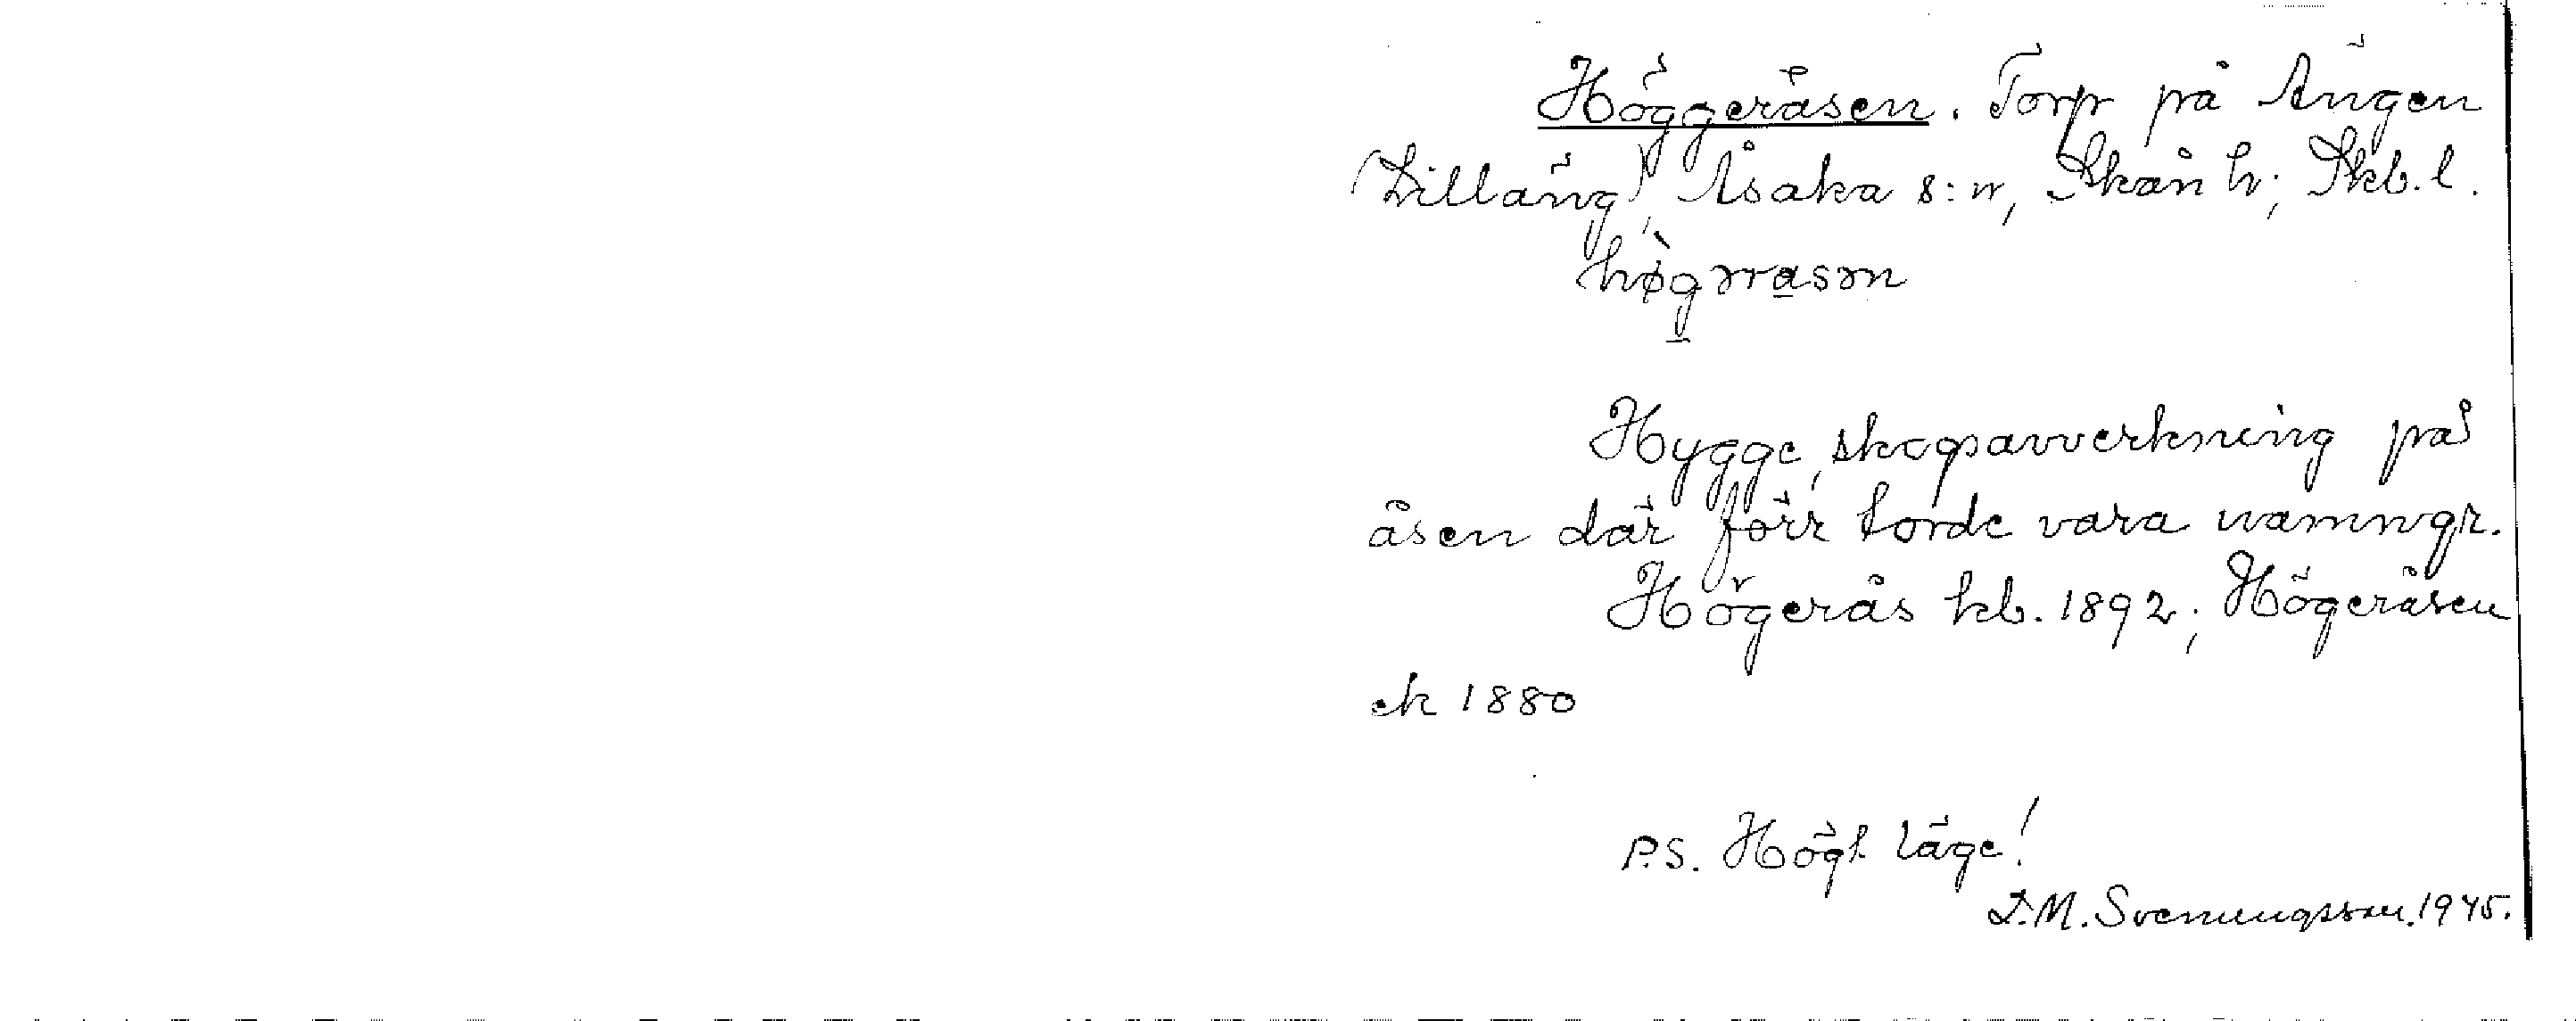 Höggeråsen. Torp på Ängen
(Lilläng), Åsaka s:n, Skån h; Skb. l.
hø̀gərasən
Hygge, skogsavverkning på
åsen där förr torde vara namngr.
Högerås kb. 1892; Högeråsen
ek 1880
P.S. Högt läge!
D.M. Svenungsson. 1945.